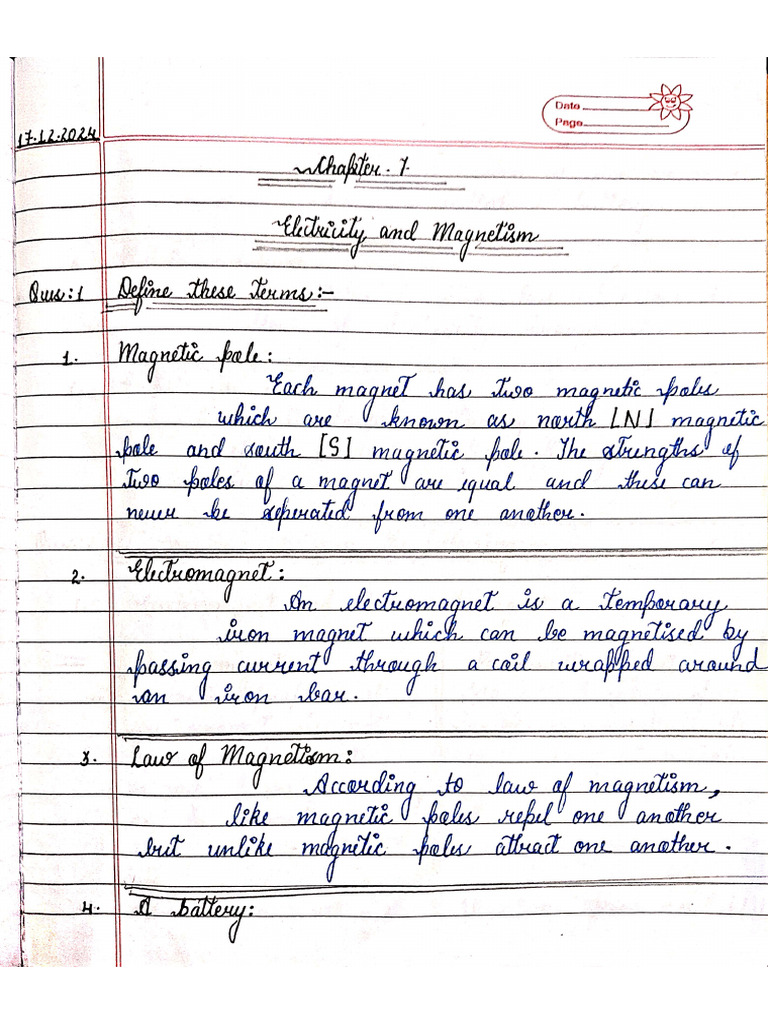 Date
Page
17.12.2024
Chapter. 7.
Electricity and Magnetism
Ques:1 Define these terms:-
1. Magnetic pole:
Each magnet has two magnetic poles
which are known as north [N] magnetic
pole and south [S] magnetic pole. The strengths of
two poles of a magnet are equal and these can
never be seperated from one another.
2. Electromagnet:
An electromagnet is a temporary
iron magnet which can be magnetised by
passing current through a coil wrapped around
an iron bar.
3. Law of Magnetism:
According to law of magnetism,
like magnetic poles repel one another
but unlike magnetic poles attract one another.
4. A battery: